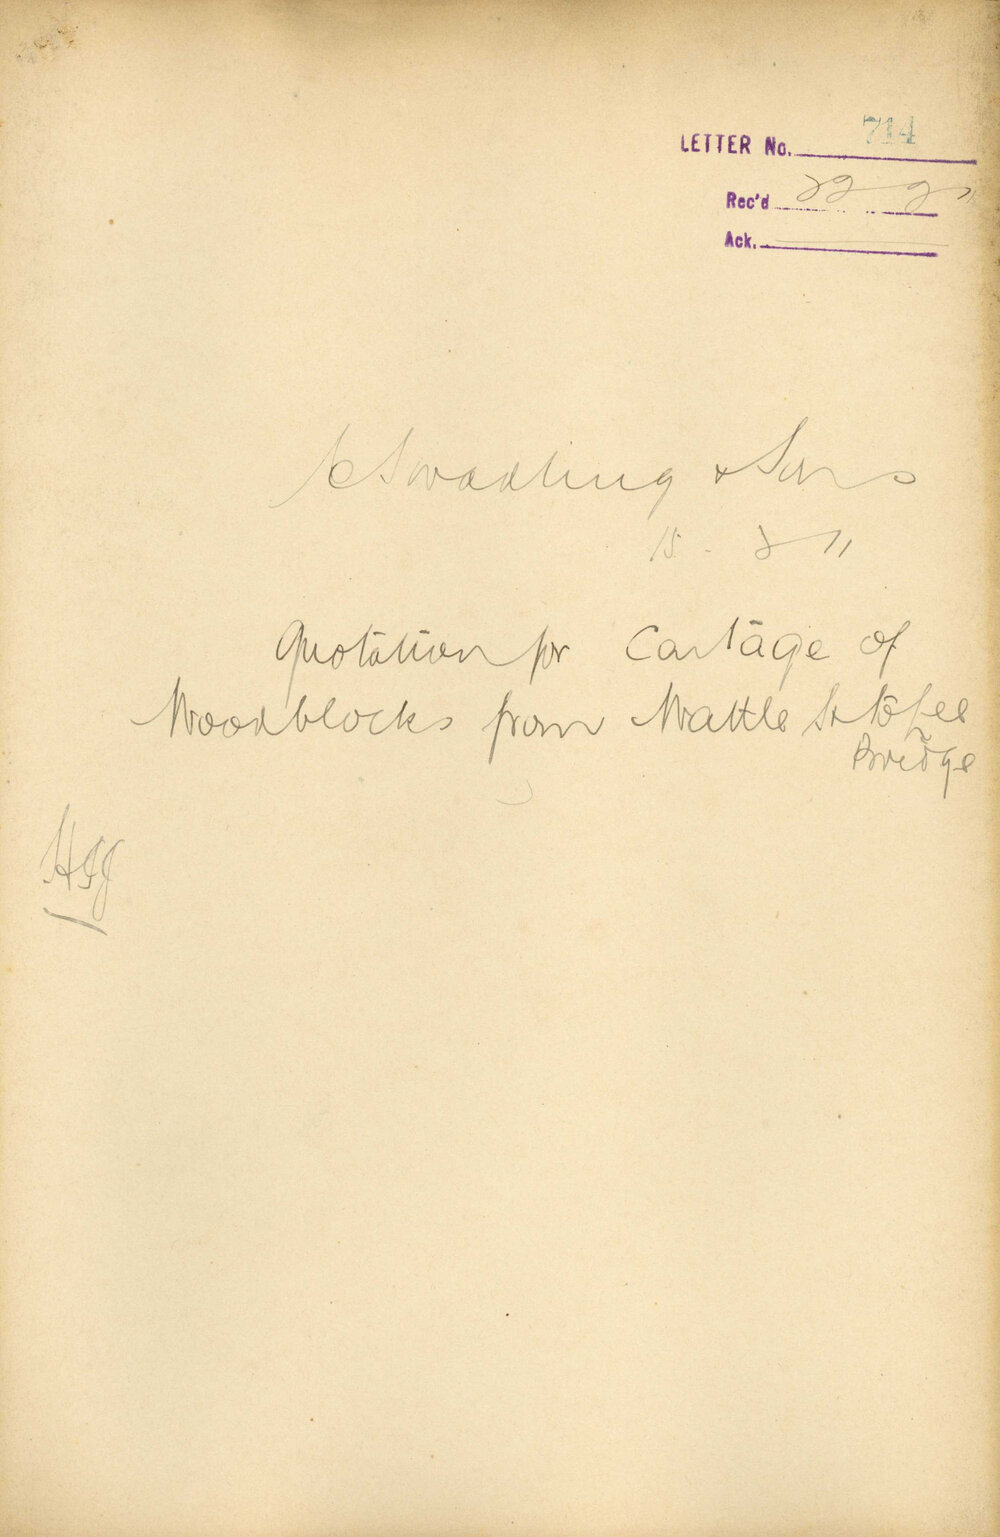 LETTER No. 714
Rec'd 22 2 11
Ack.
Swadling & Sons
15. 2 11
Quotation for Cartage of
Woodblocks from Wattle St to Pee
Bridge